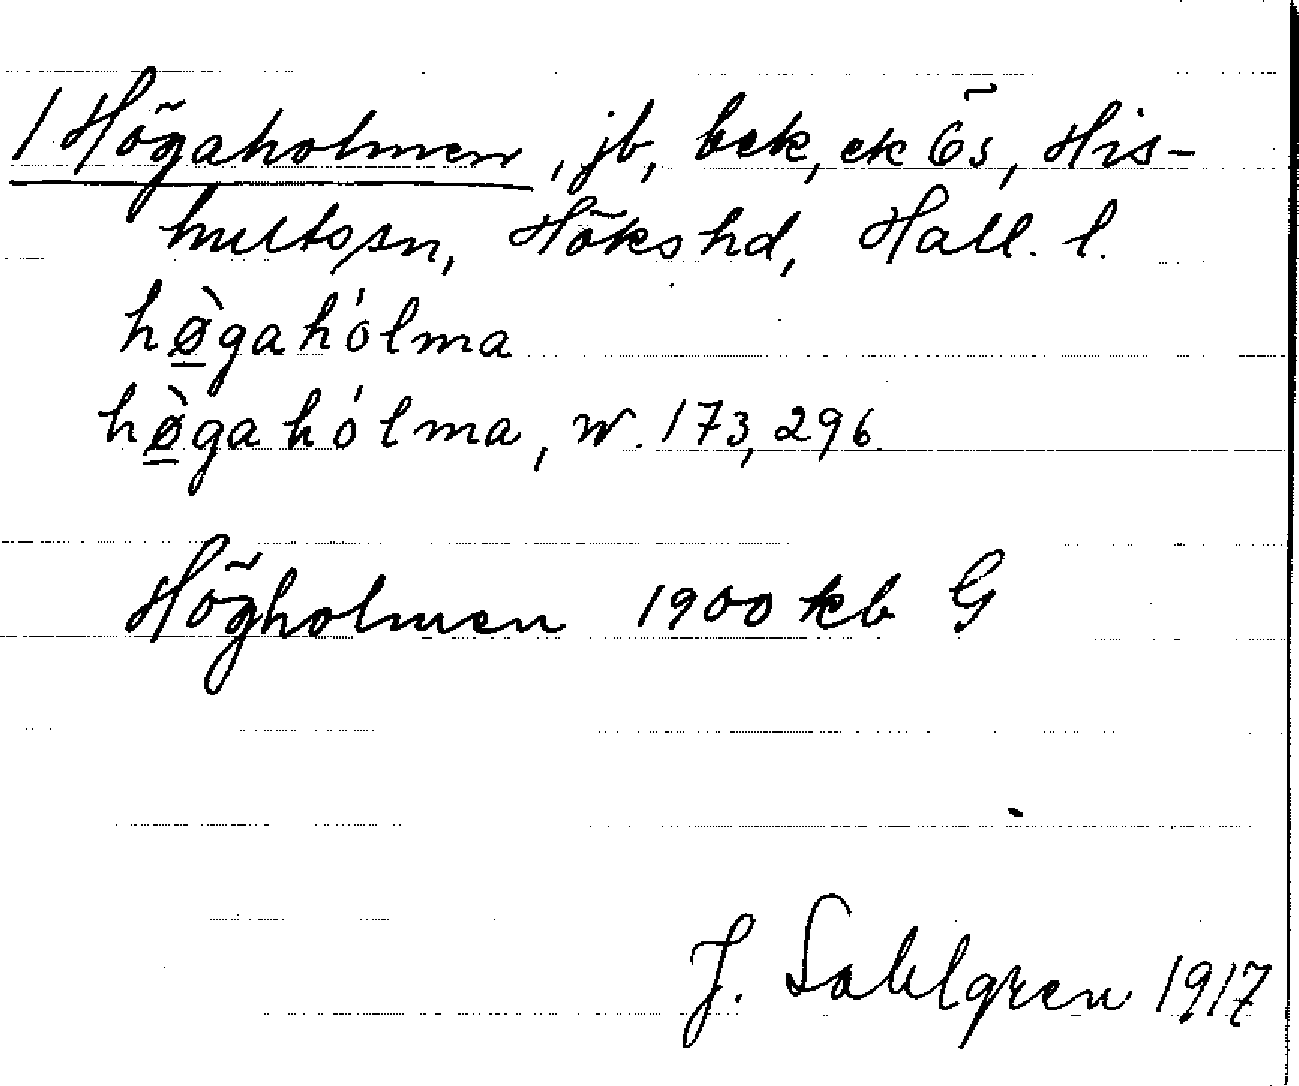 / Högaholmen, jb, bek, ek 6s, His-
hultssn, Höks hd, Hall. l.
hø̠̀gahólma
hø̠̀gahólma, W. 173, 296
Högholmen 1900 kb G
J. Sahlgren 1917